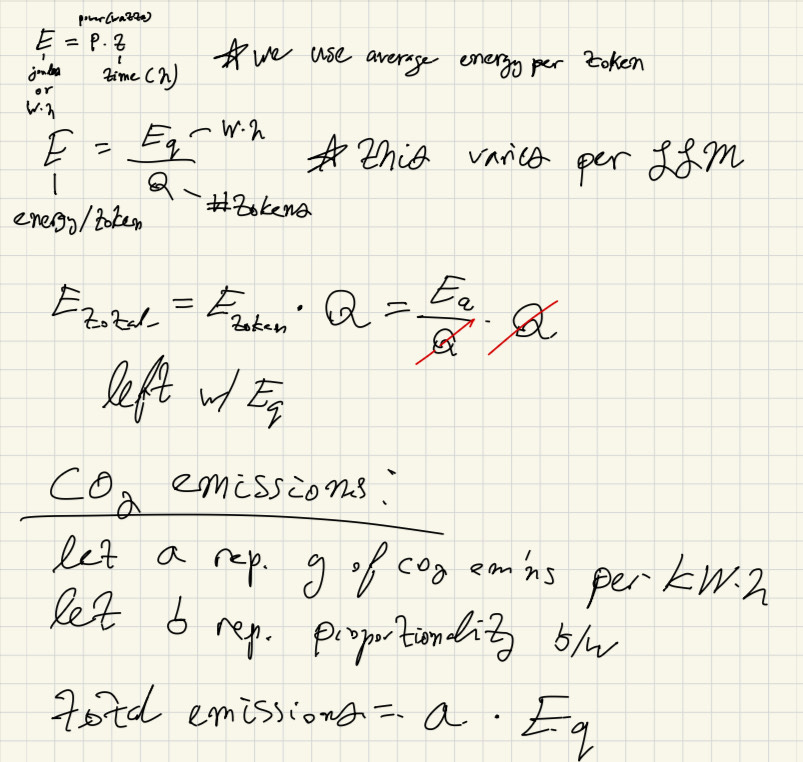 power(watts)
E = P · t
joules
or
W·h
time (h)
* we use average energy per token
E = Eq / Q
W·h
# tokens
energy/token
* this varies per LLM
E total = E token · Q = Eq / Q · Q
left w/ Eq
CO2 emissions:
let a rep. g of CO2 em'ns per kW·h
let b rep. proportionality b/w
total emissions = a · Eq